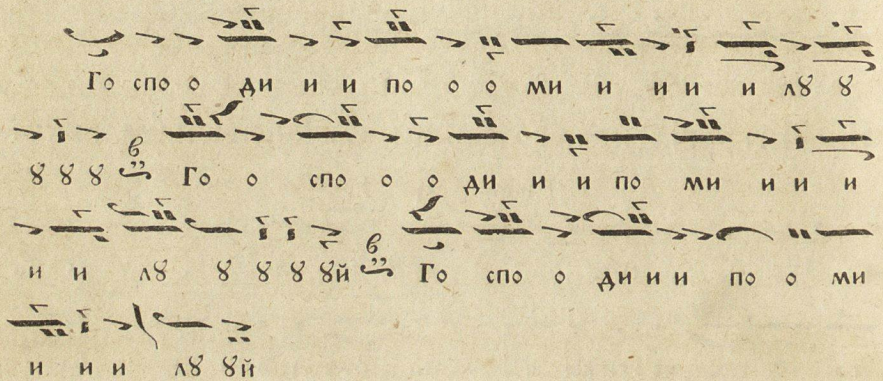 Го спо о ди и и по о о ми и и и и лꙋ ꙋ
ꙋ ꙋ ꙋ в Го о спо о о ди и и по ми и и и
и и лꙋ ꙋ ꙋ ꙋ ꙋй в Го спо о ди и и по о ми
и и и лꙋ ꙋй